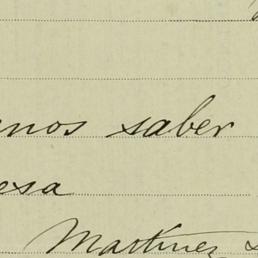 nos saber
esa
Martinez